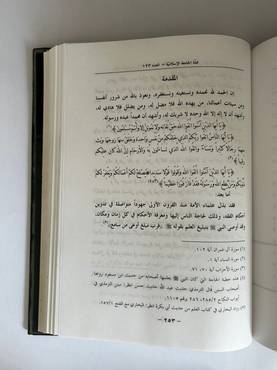 مجلة الجامعة الإسلامية – العدد ١٢٣
المقدمة
إن الحمد لله نحمده ونستعينه ونستغفره، ونعوذ بالله من شرور أنفسنا
ومن سيئات أعمالنا، من يهده الله فلا مضل له، ومن يضلل فلا هادي له،
وأشهد أن لا إله إلا الله وحده لا شريك له، وأشهد أن محمداً عبده ورسوله.
﴿يا أيها الذين آمنوا اتقوا الله حق تقاته ولا تموتن إلا وأنتم مسلمون﴾(١)
﴿يا أيها الناس اتقوا ربكم الذي خلقكم من نفس واحدة وخلق منها زوجها وبث
منهما رجالا كثيرا ونساء واتقوا الله الذي تساءلون به والأرحام إن الله كان عليكم
رقيبا﴾(٢)
﴿يا أيها الذين آمنوا اتقوا الله وقولوا قولا سديدا يصلح لكم أعمالكم ويغفر لكم
ذنوبكم ومن يطع الله ورسوله فقد فاز فوزا عظيما﴾(٣)(٤)
أما بعد:
فقد بذل علماء الأمة منذ القرون الأولى جهوداً متواصلة في تدوين
أحكام الفقه، وذلك لحاجة الناس إليها ومعرفة الأحكام في كل زمان ومكان،
وقد أوصى النبي ﷺ بتبليغ العلم بقوله (فرب مبلغ أوعى من سامع)(٥)
(١) سورة آل عمران آية ١٠٢.
(٢) سورة النساء آية ١.
(٣) سورة الأحزاب آية ٧٠، ٧١.
(٤) هذه خطبة الحاجة التي كان النبي ﷺ يعلمها أصحابه من حديث ابن مسعود رواها
أصحاب السنن قال الترمذي: حديث عبد الله حديث حسن. انظر: سنن الترمذي في
أبواب النكاح ٢٨٥/٢، ٢٨٦ رقم ١١٠٥.
(٥) رواه البخاري في كتاب العلم من حديث أبي بكرة انظر: البخاري مع الفتح ١٥٧/١.
– ٢٥٣ –